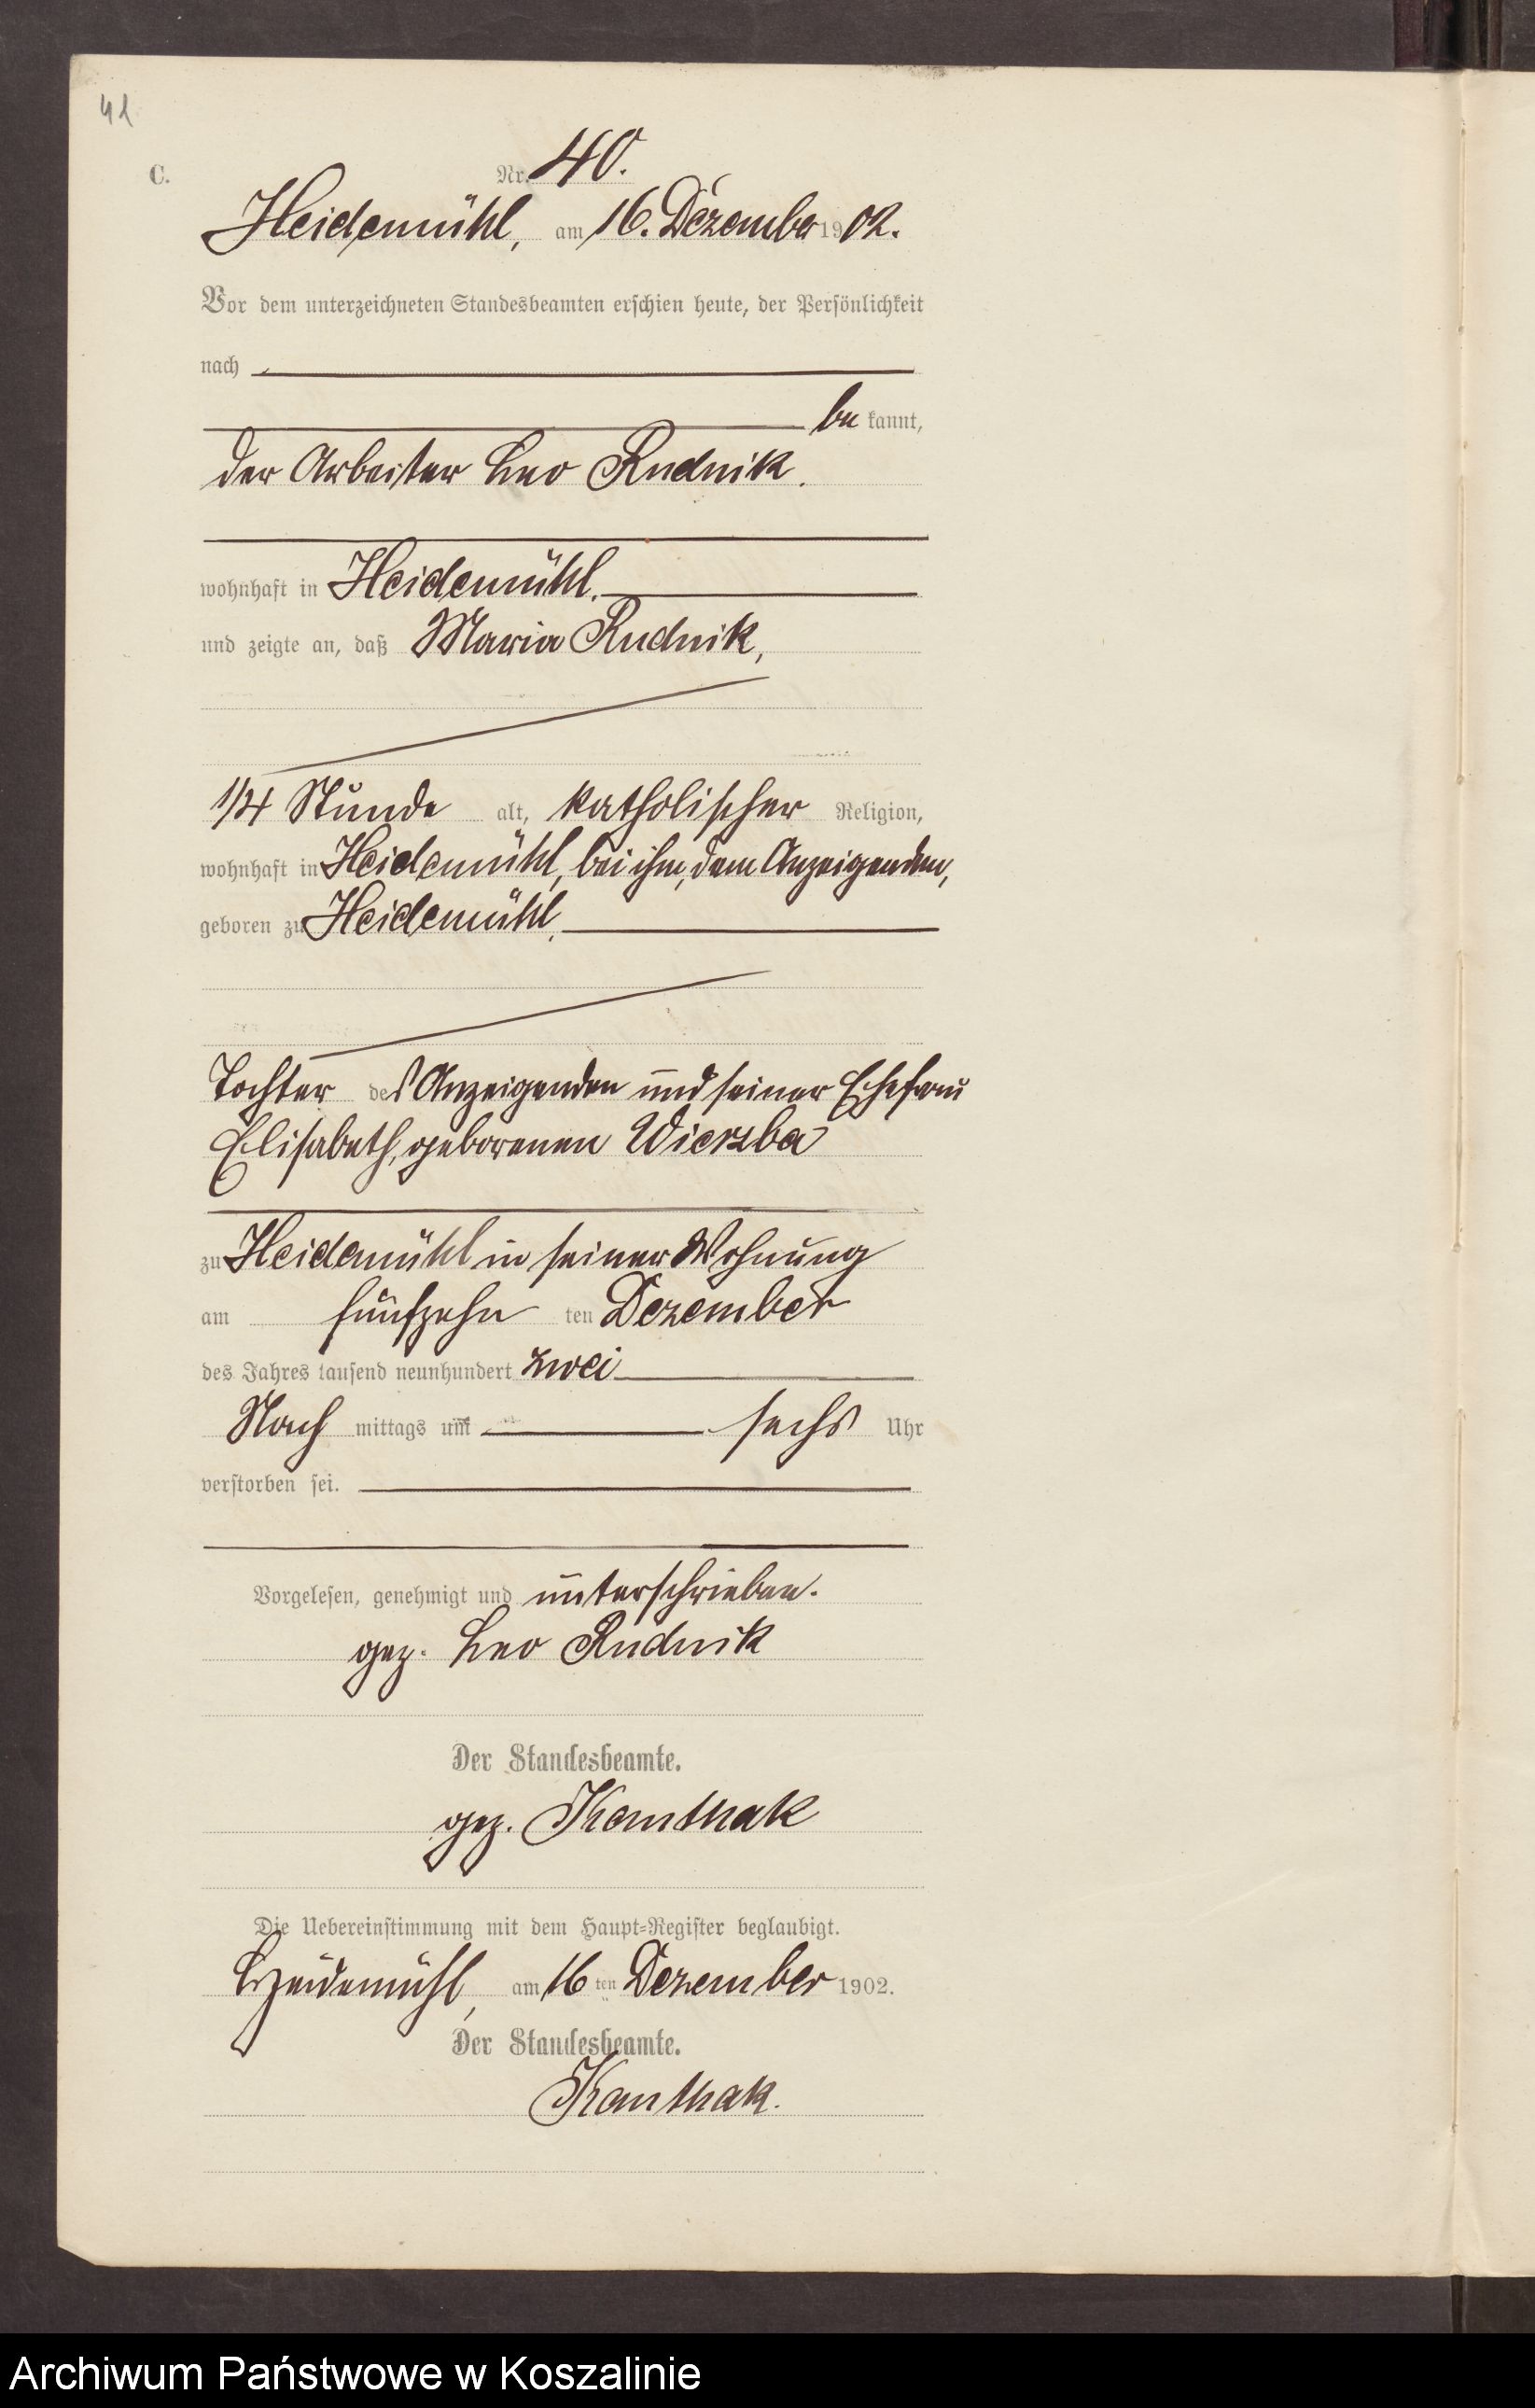 41
C.
Nr. 40.
Heidemühl, am 16. Dezember 1902.
Vor dem unterzeichneten Standesbeamten erschien heute, der Persönlichkeit
nach
be kannt,
der Arbeiter Leo Rudnik.
wohnhaft in Heidemühl.
und zeigte an, daß Maria Rudnik,
1/4 Stunde alt, katholischer Religion,
wohnhaft in Heidemühl, bei ihm, dem Anzeigenden,
geboren zu Heidemühl,
Tochter des Anzeigenden und seiner Ehefrau
Elisabeth, geborenen Wierzba
zu Heidemühl in seiner Wohnung
am fünfzehn ten Dezember
des Jahres tausend neunhundert zwei
Nach mittags um sechs Uhr
verstorben sei.
Vorgelesen, genehmigt und unterschrieben.
gez. Leo Rudnik
Der Standesbeamte.
gez. Kanthak
Die Uebereinstimmung mit dem Haupt-Register beglaubigt.
Heidemühl, am 16 ten Dezember 1902.
Der Standesbeamte.
Kanthak.
Archiwum Państwowe w Koszalinie